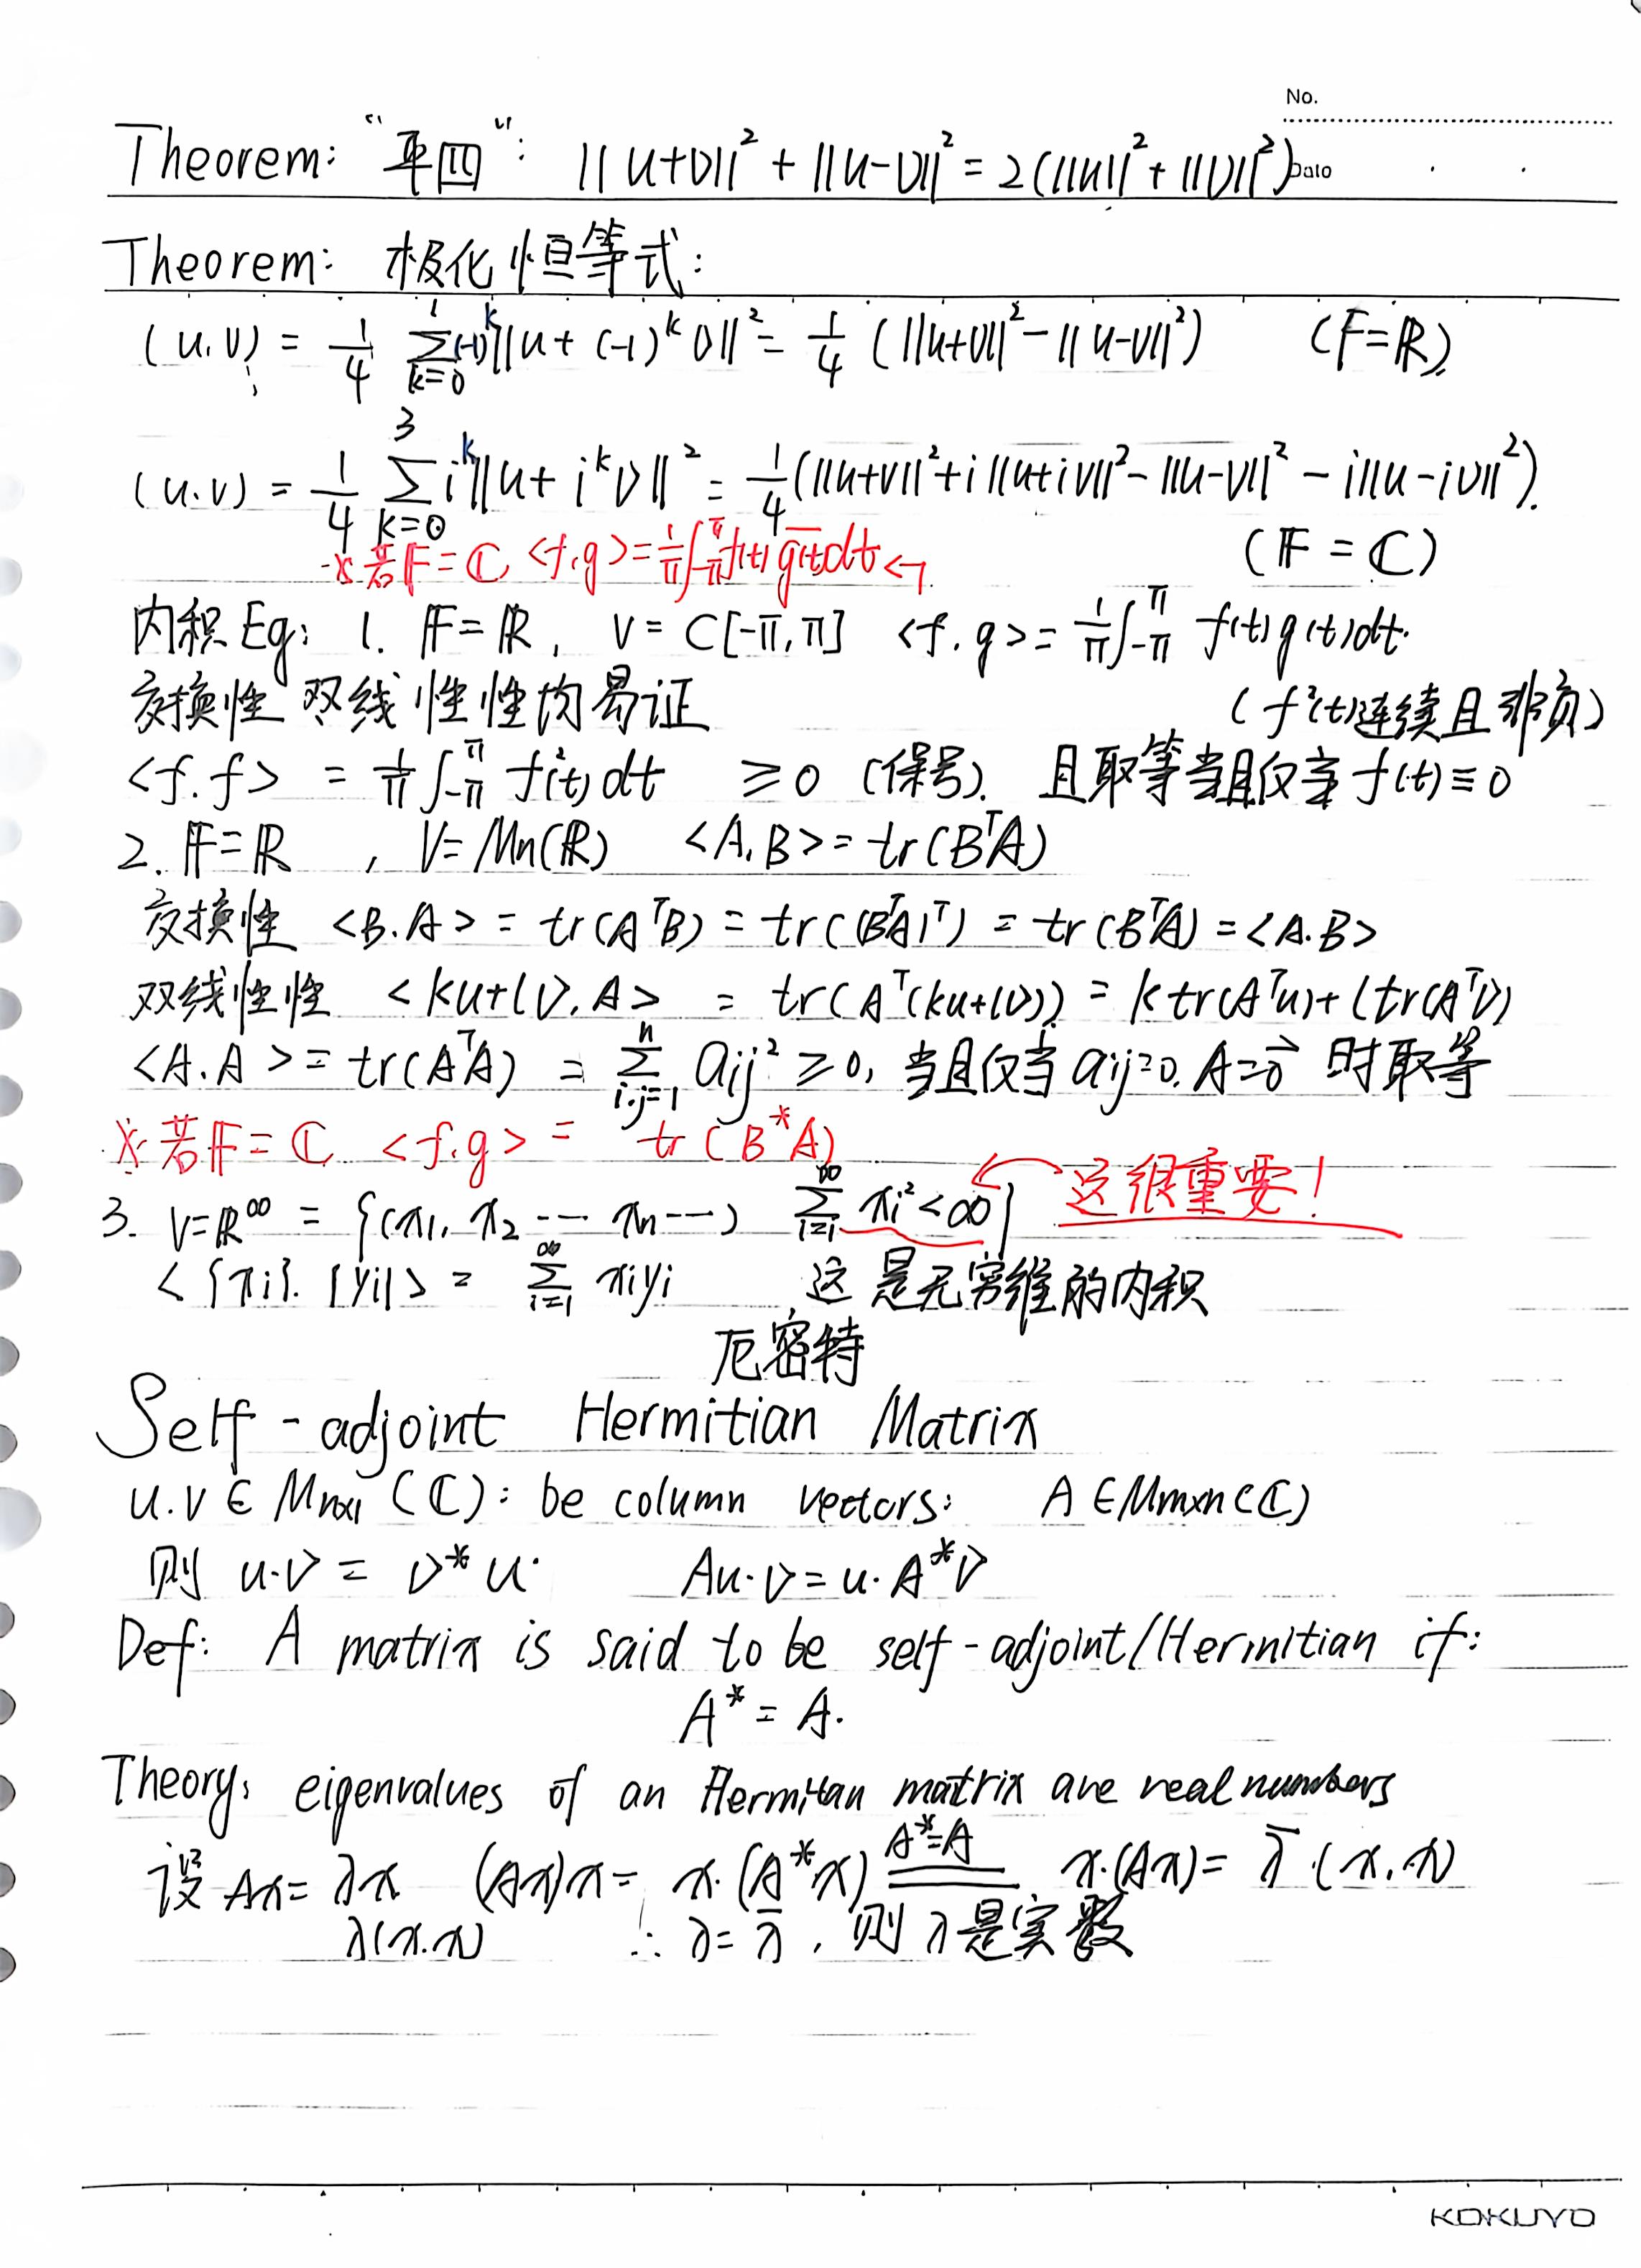 No.
Theorem: “平四”: ||u+v||² + ||u-v||² = 2(||u||² + ||v||²)
Date
Theorem: 极化恒等式:
(u.v) = 1/4 ∑_{k=0}^{1} (-1)^k ||u + (-1)^k v||² = 1/4 (||u+v||² - ||u-v||²) (F=ℝ)
(u.v) = 1/4 ∑_{k=0}^{3} i^k ||u + i^k v||² = 1/4 (||u+v||² + i||u+iv||² - ||u-v||² - i||u-iv||²).
※若𝔽=ℂ <f.g> = 1/π ∫_{-π}^{π} f(t) \overline{g(t)} dt ↰
(𝔽 = ℂ)
内积 Eg: 1. 𝔽=ℝ, V = C[-π,π] <f.g> = 1/π ∫_{-π}^{π} f(t)g(t)dt.
交换性 双线性性均易证
(f²(t)连续且非负)
<f.f> = 1/π ∫_{-π}^{π} f²(t) dt ≥0 (保号). 且取等当且仅当 f(t)≡0
2. 𝔽=ℝ , V=Mn(ℝ) <A.B> = tr(BᵀA)
交换性 <B.A> = tr(AᵀB) = tr((BᵀA)ᵀ) = tr(BᵀA) = <A.B>
双线性性 <ku+lv.A> = tr(Aᵀ(ku+lv)) = k tr(Aᵀu) + l tr(Aᵀv)
<A.A> = tr(AᵀA) = ∑_{i.j=1}^{n} aij² ≥0, 当且仅当 aij=0. A=0⃗ 时取等
※若𝔽=ℂ <f.g> = tr(B*A)
3. V=ℝ^∞ = {(x1, x2 ... xn ...) ∑_{i=1}^{∞} xi² < ∞} 这很重要!
<{xi}.{yi}> = ∑_{i=1}^{∞} xiyi 这是无穷维的内积
厄密特
Self-adjoint Hermitian Matrix
u.v ∈ Mnx1(ℂ): be column vectors: A∈Mmxn(ℂ)
则 u·v = v*u. Au·v = u·A*v
Def: A matrix is said to be self-adjoint/Hermitian if:
A* = A.
Theory: eigenvalues of an Hermitan matrix are real numbers
设 Ax = λx (Ax)x = x·(A*x) \overset{A*=A}{=} x·(Ax) = \overline{λ}·(x.x)
λ(x.x) ∴ λ=\overline{λ}, 则λ是实数
KOKUYO